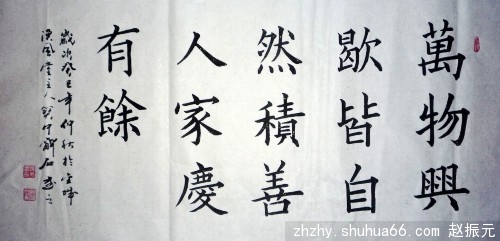 萬物興
歇皆自
然積善
人家慶
有餘
歲次癸巳年仲秋於
漢風堂主人
zhzhy.shuhua66.com 赵振元